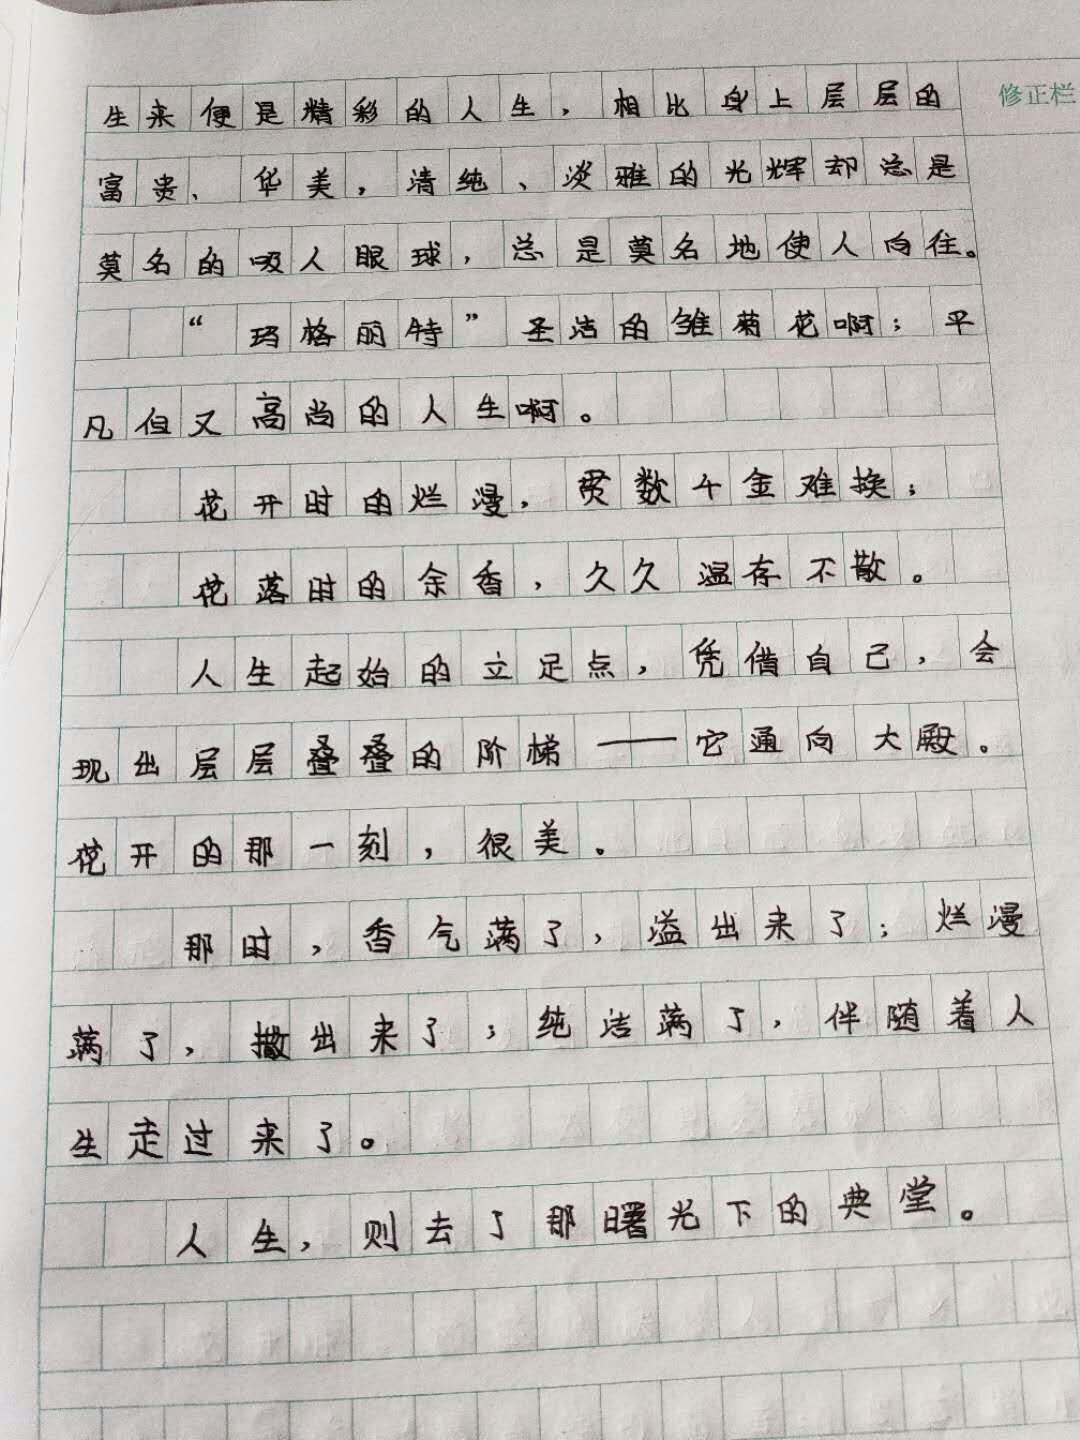 生来便是精彩的人生，相比身上层层的
修正栏
富贵、华美，清纯、淡雅的光辉却总是
莫名的吸人眼球，总是莫名地使人向往。
“玛格丽特”圣洁的雏菊花啊；平
凡但又高尚的人生啊。
花开时的烂漫，贯数千金难换；
花落时的余香，久久温存不散。
人生起始的立足点，凭借自己，会
现出层层叠叠的阶梯——它通向大殿。
花开的那一刻，很美。
那时，香气满了，溢出来了；烂漫
满了，撒出来了；纯洁满了，伴随着人
生走过来了。
人生，则去了那曙光下的典堂。